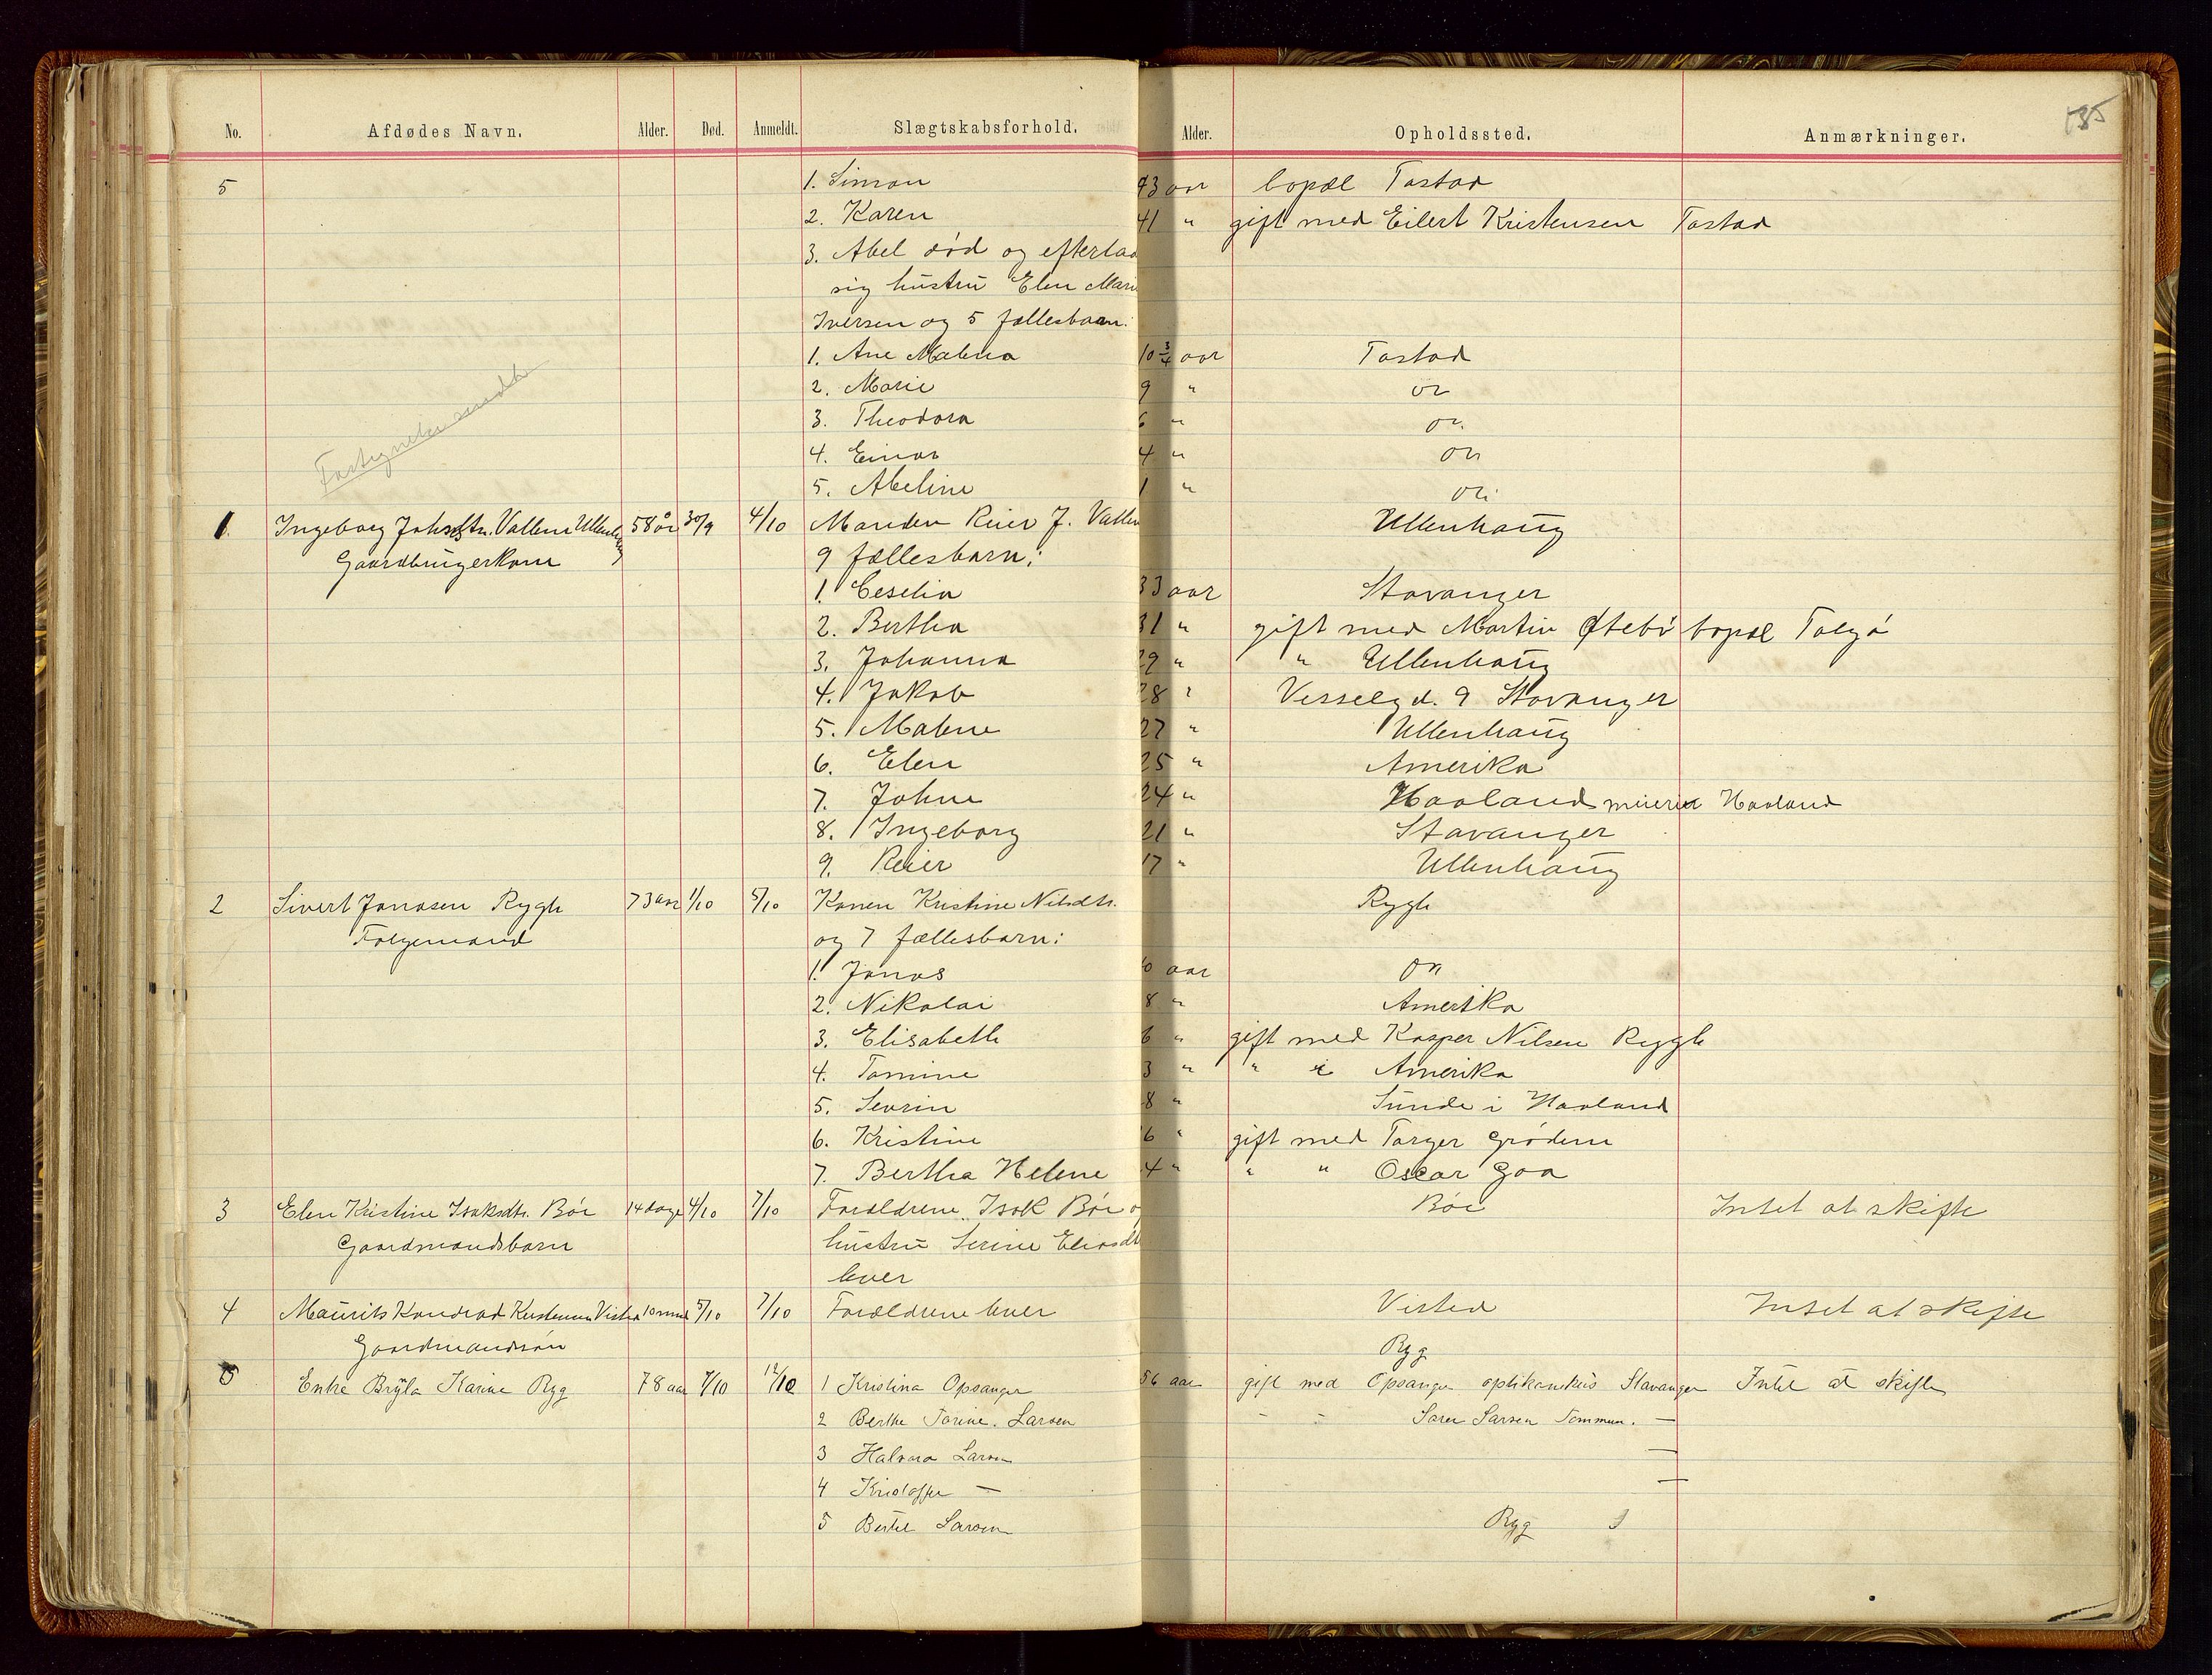 No. Afdødes Navn. Alder. Død. Anmeldt. Slægtskabsforhold. Alder. Opholdssted. Anmærkninger. 135
5 1. Simon 43 aar bopæl Tastad
2. Karen 41 " gift med Eilert Kristensen Tastad
3. Abel død og efterlad
sig hustru Elen Marie
Iversen og 5 fællesbarn:
1. Ane Malena 10 3/4 aar Tastad
2. Marie 9 " do
3. Theodora 6 " do
4. Einar 4 " do
5. Abeline 1 " do
1. Ingeborg Johsdtr. Vallene Ullenhaug 58 år 30/9 4/10 Manden Reier J. Vallen Ullenhaug
Gaardbrugerkone 9 fællesbarn:
1. Ceselia 33 aar Stavanger
2. Bertha 31 " gift med Martin Øtebø bopæl Talgø
3. Johanna 29 " " Ullenhaug
4. Jakob 28 " Versselgd. 9 Stavanger
5. Malene 27 " Ullenhaug
6. Elen 25 " Amerika
7. Johne 24 " Haaland meieri Haaland
8. Ingeborg 21 " Stavanger
9. Reier 17 " Ullenhaug
2 Sivert Jonasen Rygh 73 aar 1/10 5/10 Konen Kristine Nilsdtr. Rygh
Folgemand og 7 fællesbarn:
1. Jonas 0 aar do
2. Nikolai 8 " Amerika
3. Elisabeth 6 " gift med Kasper Nilsen Rygh
4. Tomine 3 " " i Amerika
5. Sevrin 8 " Sunde i Haaland
6. Kristine 6 " gift med Torger Grødem
7. Bertha Helene 4 " " " Oscar Goa
3 Elen Kristine Isaksdtr. Bøe 14 dage 4/10 7/10 Forældrene Isak Bøe o Bøe Intet at skifte
Gaardmandsbarn hustru Serine Eliasdt
lever
4 Maurits Kondrad Kristensen Visted 10 mnd 5/10 7/10 Forældrene lever Visted Intet at skifte
Gaardmandssøn
Ryg
5 Enke Karine Ryg 78 aar 7/10 12/10 1 Kristina Opsanger 56 aar gift med Opsanger Stavanger Intet at skifte
2 Berthe Torine. Larsen - - Larsen Tømmerm. —
3 Halvara Larsen —
4 Kristoffer — —
5 Bertel Larsen Ryg